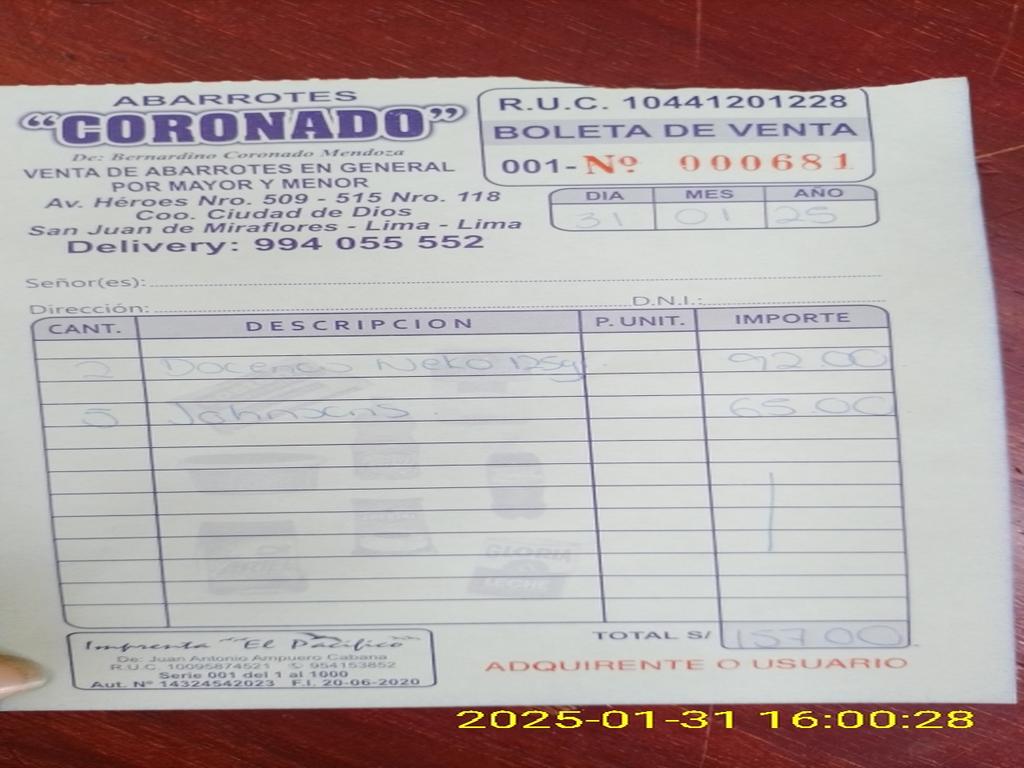 ABARROTES
"CORONADO"
De: Bernardino Coronado Mendoza
VENTA DE ABARROTES EN GENERAL
POR MAYOR Y MENOR
Av. Héroes Nro. 509 - 515 Nro. 118
Coo. Ciudad de Dios
San Juan de Miraflores - Lima - Lima
Delivery: 994 055 552
R.U.C. 10441201228
BOLETA DE VENTA
001- Nº 000681
DIA MES AÑO
31 01 25
Señor(es):
Dirección: D.N.I.:
CANT. DESCRIPCION P. UNIT. IMPORTE
2 Docenas Neko 125g. 92.00
5 Johnsons. 65.00
ARIEL
GLORIA
LECHE
TOTAL S/ 157.00
Imprenta "El Pacífico"
De: Juan Antonio Ampuero Cabana
R.U.C. 10095874521 954153852
Serie 001 del 1 al 1000
Aut. Nº 14324542023 F.I. 20-06-2020
ADQUIRENTE O USUARIO
2025-01-31 16:00:28